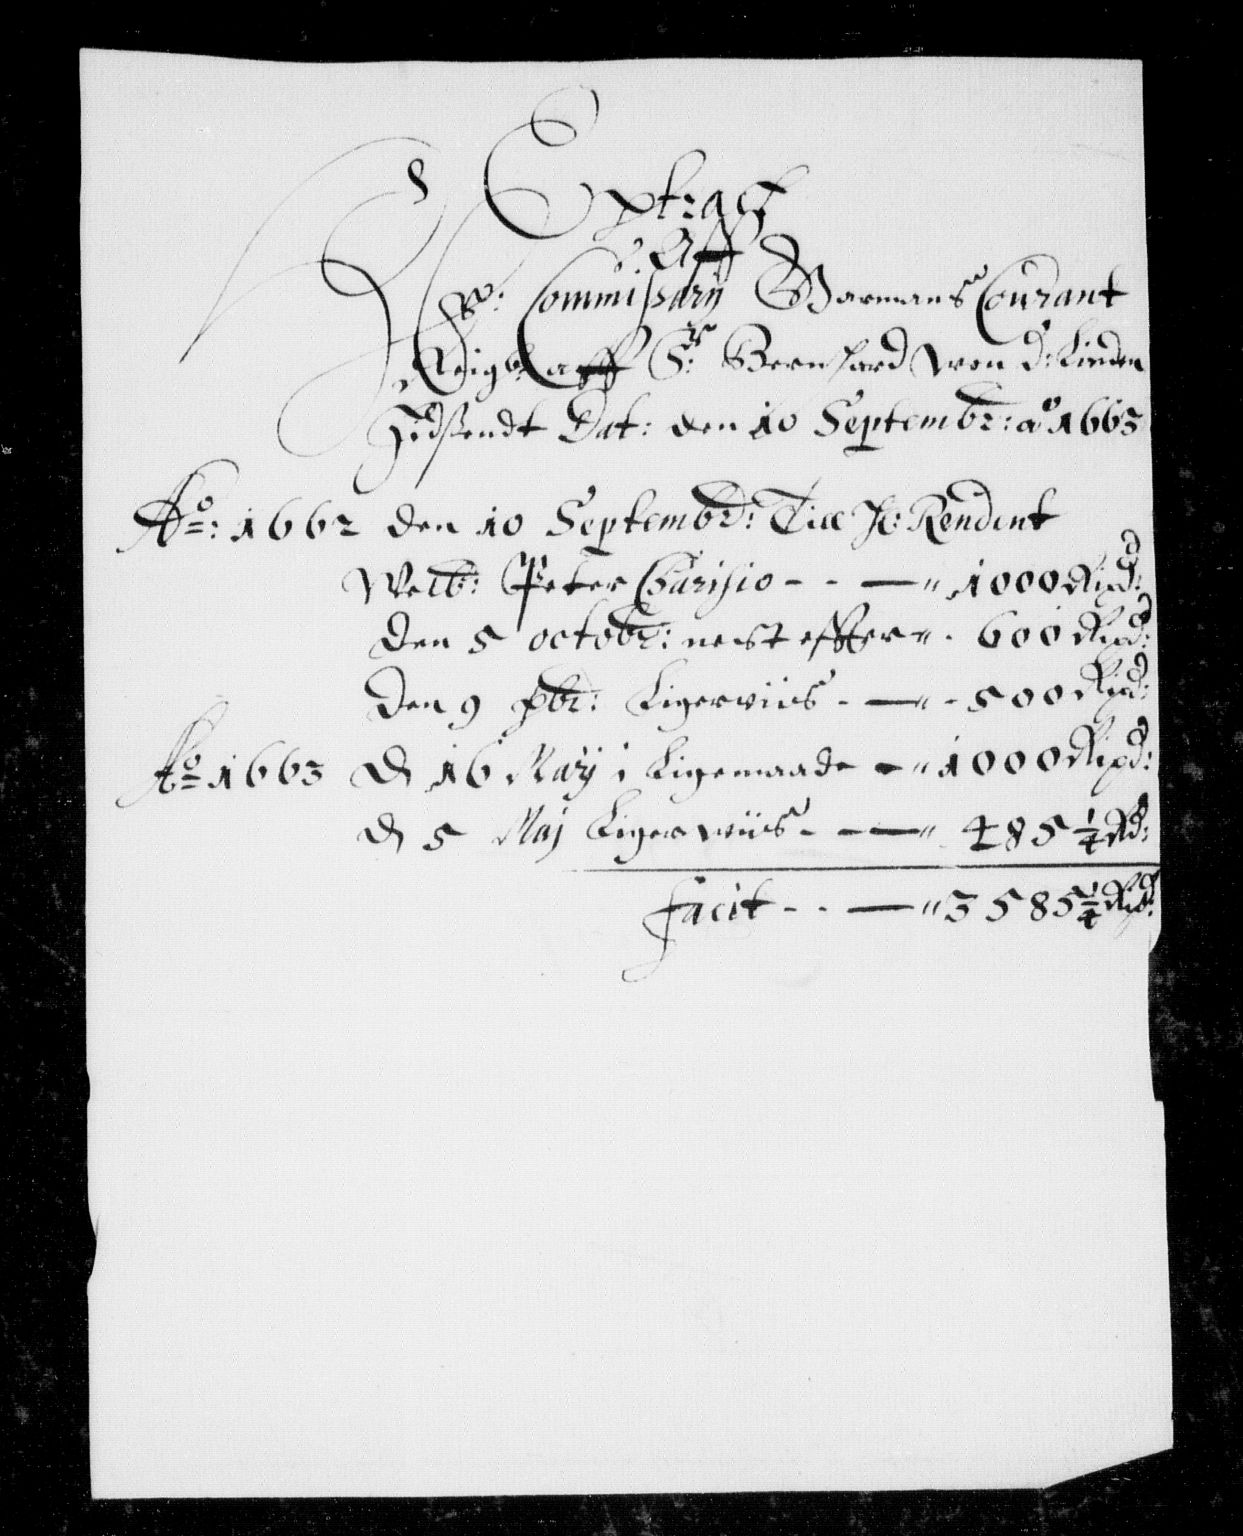 Extract
Aff
Hr: Commissarij Bormans Courant
Reigb: aff Sr: Bernhard von d: Linden
Hidsendt Dat: den 10 Septembr: ao 1663
Ao: 1662 den 10 Septembr: Till H: Rendent
Welb: Peter Charisio - - — " 1000 Rixd:
den 5 octobr: nest effter " - 600 Rixd:
den 9 xbr: Ligerviis - — " - 500 Rixd:
Ao 1663 d 16 Marij i Ligemaade — " 1000 Rixd:
d 5 Maj Ligerwiis - — — " 485 1/4 Rd:
facit - - — " 3585 1/4 Rixd: